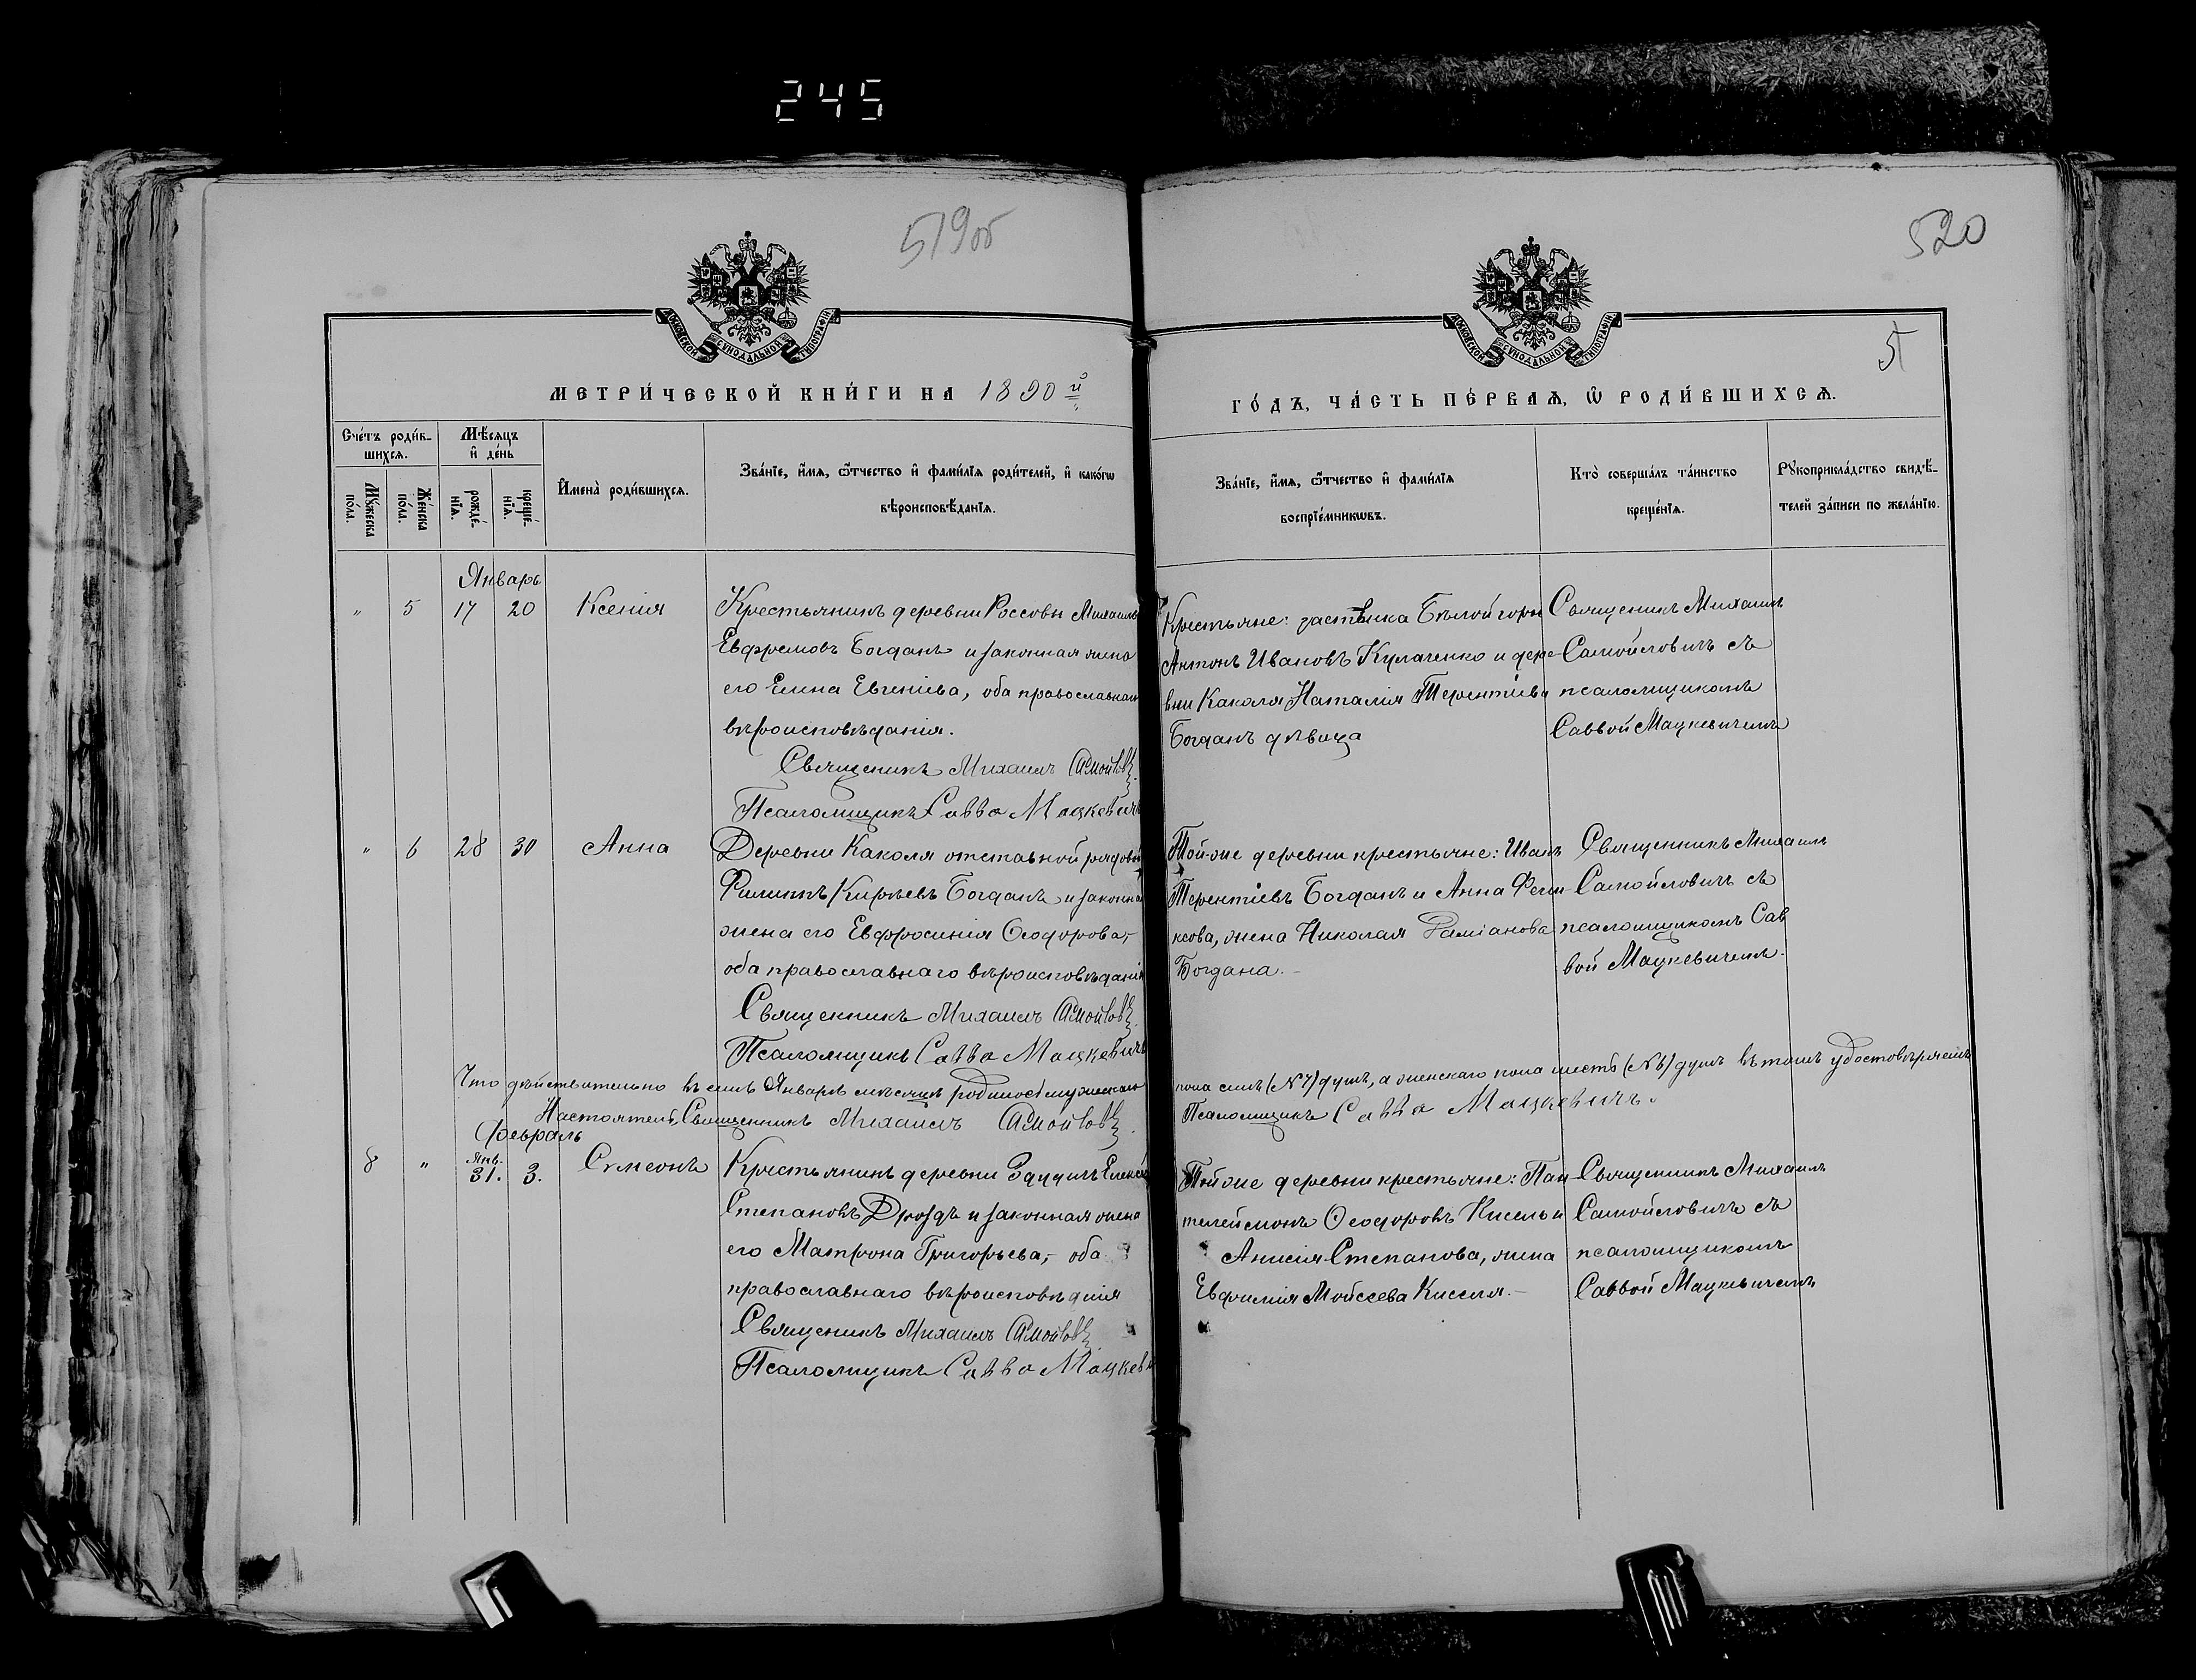 245
519об
520
МОСКОВСКОЙ СѴНОДАЛЬНОЙ ТИПОГРАФІИ
МОСКОВСКОЙ СѴНОДАЛЬНОЙ ТИПОГРАФІИ
5
МЕТРИ́ЧЕСКОЙ КНИ́ГИ НА 1890 й
ГО́ДЪ, ЧА́СТЬ ПЕ́РВАѦ, Ѡ РОДИ́ВШИХСѦ.
Сче́тъ роди́в-
шихсѧ.
Мѣ́сѧцъ
и҆ де́нь
Мꙋ́жеска
по́ла.
Же́нска
по́ла.
рожде́-
нїѧ.
креще́-
нїѧ.
И҆мена̀ роди́вшихсѧ.
Зва́нїе, и҆́мѧ, ѻ҆́тчество и҆ фами́лїѧ роди́телей, и҆ како́гѡ
вѣроисповѣ́данїѧ.
Зва́нїе, и҆́мѧ, ѻ҆́тчество и҆ фами́лїѧ
воспрїе́мникѡвъ.
Кто̀ соверша́лъ та́инство
креще́нїѧ.
Рꙋкоприкла́дство свидѣ́-
телей за́писи по жела́нїю.
Январь
" 5 17 20 Ксенія
Крестьянинъ деревни Россовы Михаилъ
Евфремовъ Богданъ и законная жена
его Елена Евгеніева, оба православнаго
вѣроисповѣданія.
Священникъ Михаилъ Самойлов
Псаломщикъ Савва Мацкевичъ
Крестьяне: застѣнка Бѣлой горы
Антонъ Ивановъ Кулаченко и дере-
вни Каколя Наталія Терентіева
Богданъ дѣвица
Священникъ Михаилъ
Самойловичъ съ
псаломщикомъ
Саввой Мацкевичемъ
" 6 28 30 Анна
Деревни Каколя отставной рядовой
Филиппъ Кирѣевъ Богданъ и законная
жена его Евфросинія Ѳеодорова,
оба православнаго вѣроисповѣданія
Священникъ Михаилъ Самойлов
Псаломщикъ Савва Мацкевичъ
Той-же деревни крестьяне: Иванъ
Терентіевъ Богданъ и Анна Фели-
ксова, жена Николая Даміанова
Богдана.
Священникъ Михаилъ
Самойловичъ съ
псаломщикомъ Сав
вой Мацкевичемъ.
Что дѣйствительно въ семъ Январѣ мѣсяцѣ родилось мужескаго
пола семь (№ 7) душъ, а женскаго пола шесть (№ 6) душъ въ томъ удостовѣряемъ
Настоятель, Священникъ Михаилъ Самойлов
Псаломщикъ Савва Мацкевичъ.
Февраль
8 " Янв. 31. 3. Сѵмеонъ
Крестьянинъ деревни Заушъ Елисей
Степановъ Дроздъ и законная жена
его Матрона Григорьева, оба
православнаго вѣроисповѣднія
Священникъ Михаилъ Самойлов
Псаломщикъ Савва Мацкеви
Той же деревни крестьяне: Пан-
телеймонъ Ѳеодоровъ Кисель и
Анисія Степанова, жена
Евфимія Мойсеева Киселя.
Священникъ Михаилъ
Самойловичъ съ
псаломщикомъ
Саввой Мацкевичемъ